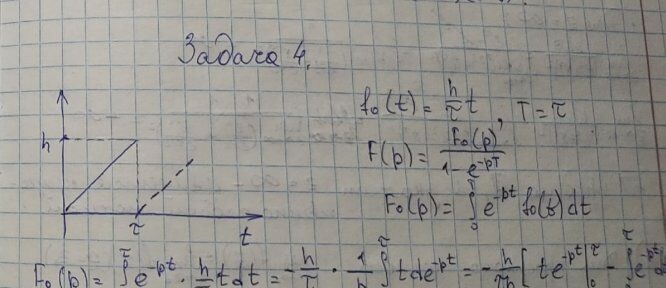 Задача 4.
f₀(t) = h/τ t, T = τ
h
F(p) = F₀(p) / 1 - e^-pT
F₀(p) = ∫₀^τ e^-pt f₀(t) dt
τ
t
F₀(p) = ∫₀^τ e^-pt · h/τ t dt = - h/τ · 1/p ∫₀^τ t de^-pt = - h/τp [ t e^-pt |₀^τ - ∫₀^τ e^-pt